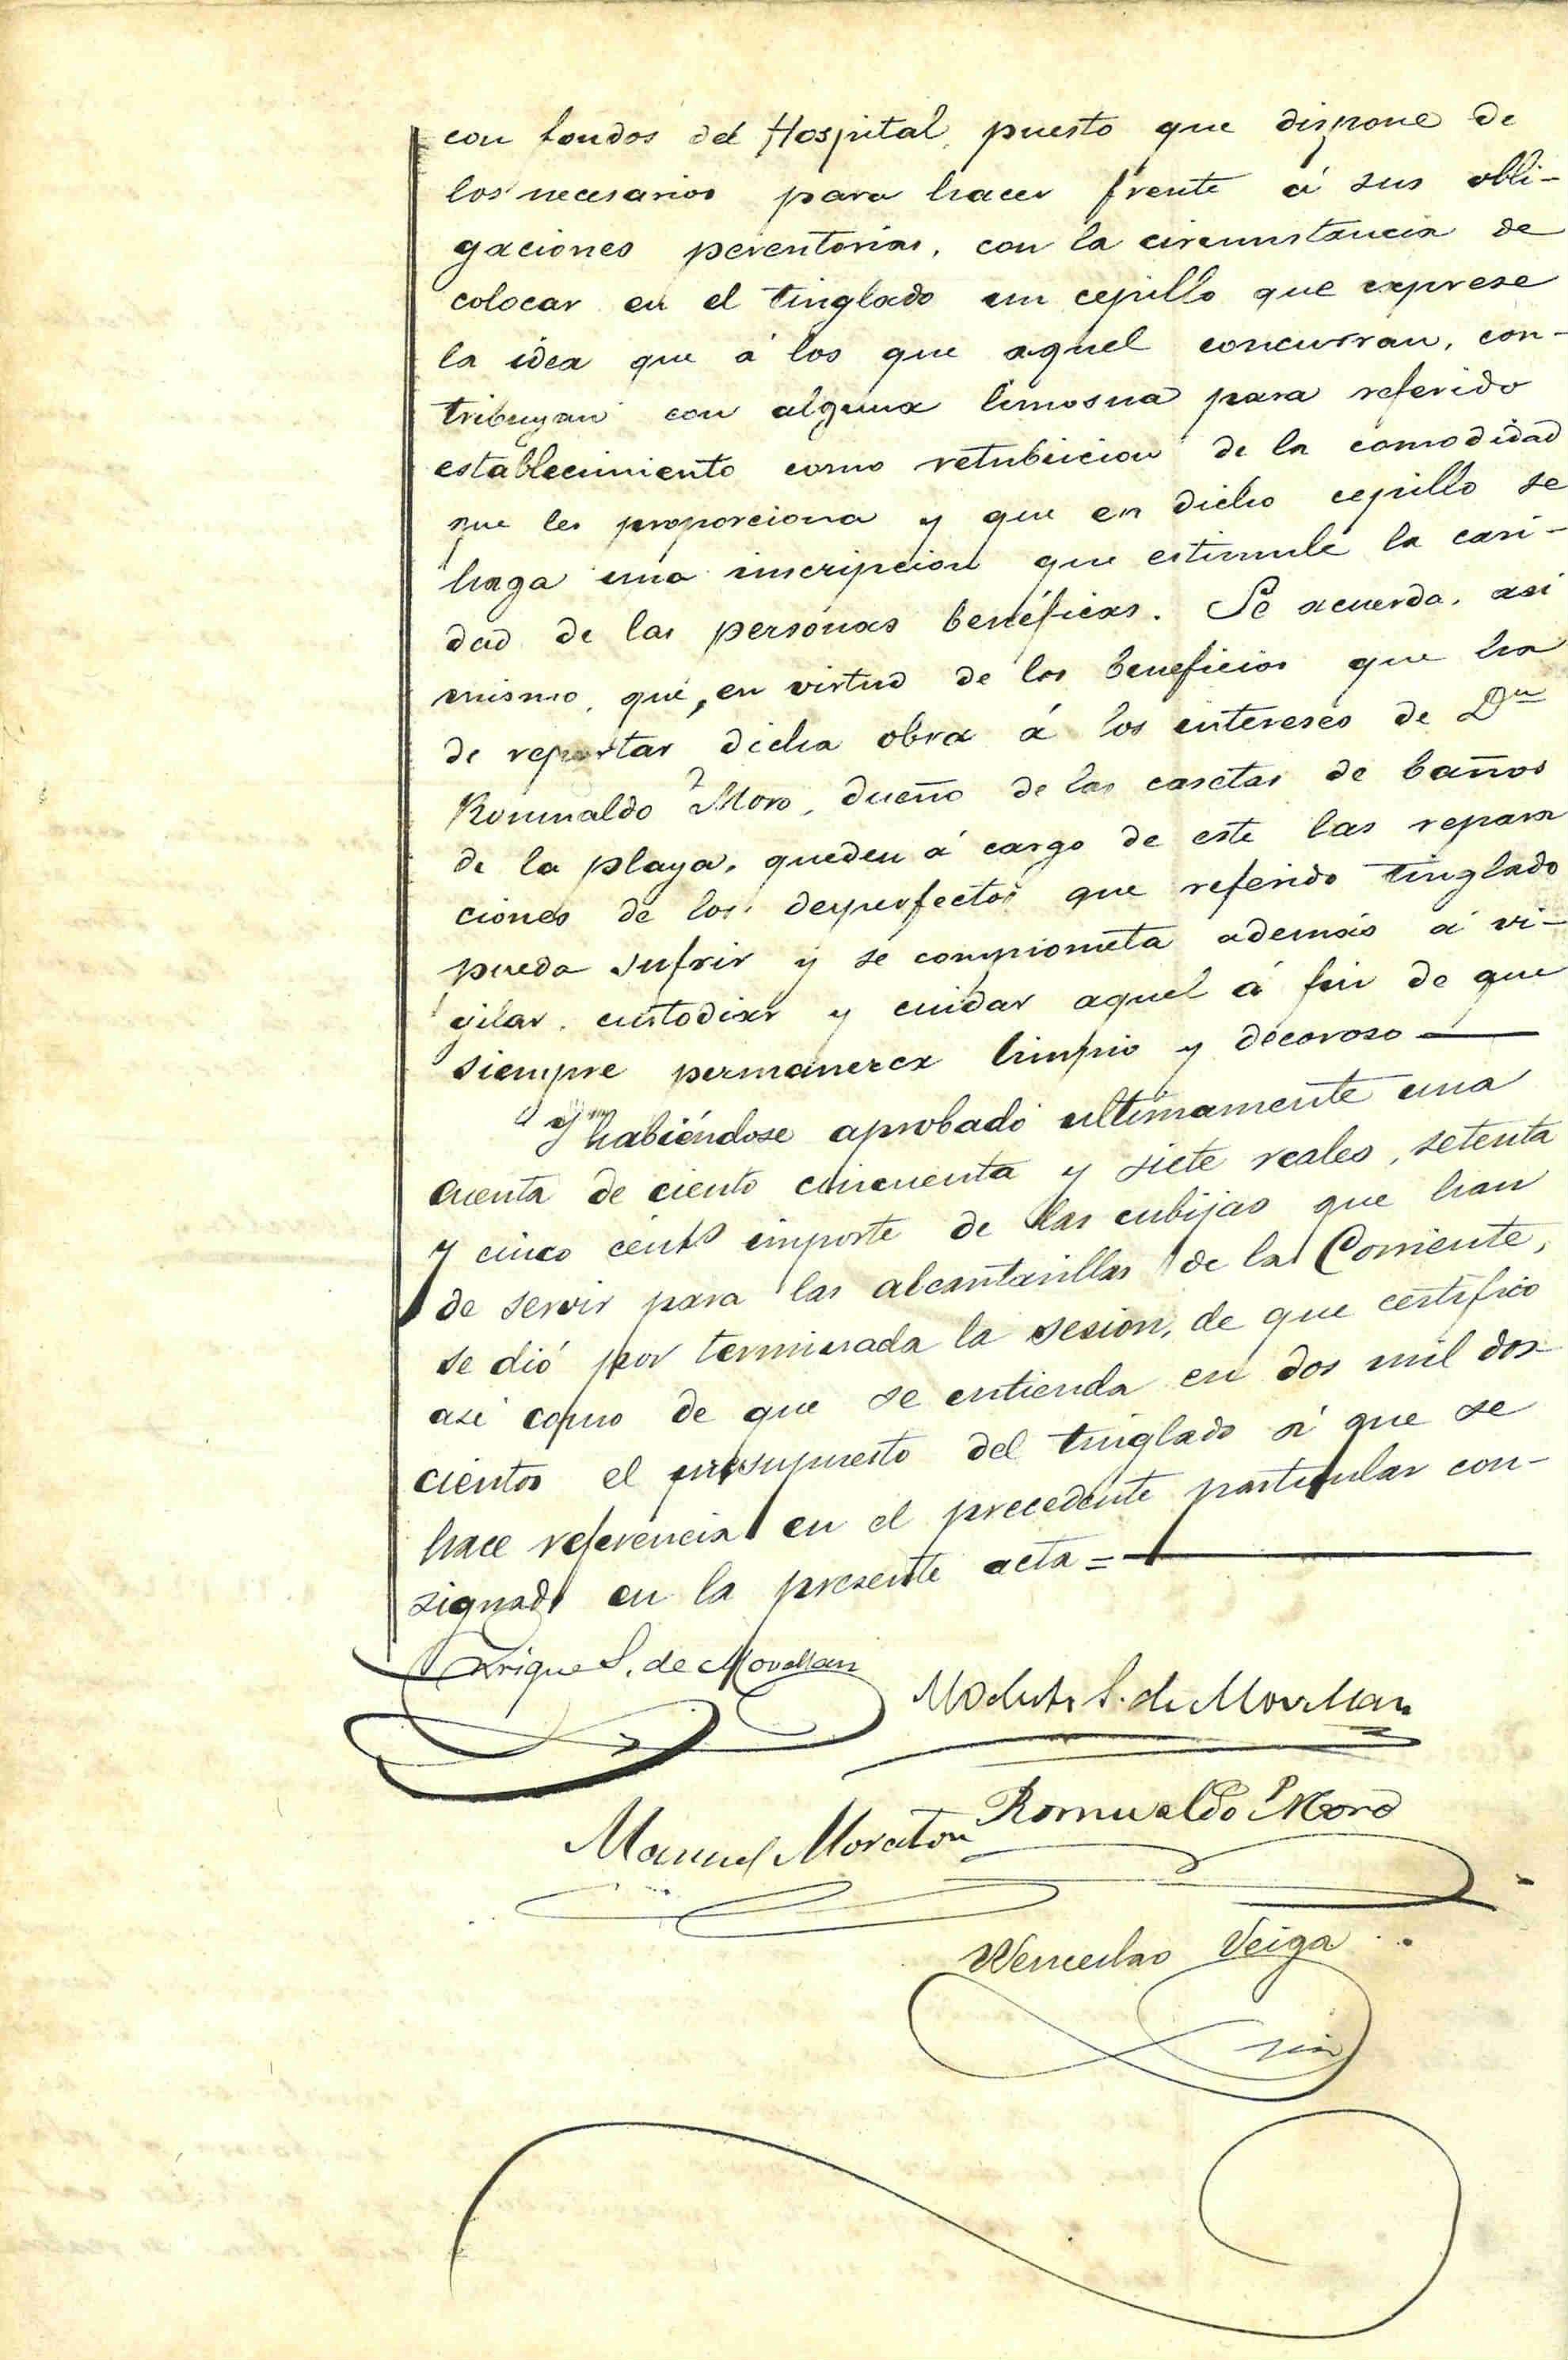 con fondos del Hospital, puesto que dispone de
los necesarios para hacer frente á sus obli-
gaciones perentorias, con la circunstancia de
colocar en el tinglado un cepillo que exprese
la idea que á los que aquel concurran, con-
tribuyan con alguna limosna para referido
establecimiento como retribuicion de la comodidad
que les proporciona y que en dicho cepillo se
haga una inscripcion que estimule la cari-
dad de las personas benéficas. Se acuerda, asi
mismo, que, en virtud de los beneficios que ha
de reportar dicha obra á los intereses de Dn
Romualdo Moro, dueño de las casetas de baños
de la playa, queden á cargo de este las repara
ciones de los desperfectos que referido tinglado
pueda sufrir y se comprometa además á vi-
gilar, custodiar y cuidar aquel á fin de que
siempre permanezca limpio y decoroso
Y habiéndose aprobado ultimamente una
cuenta de ciento cincuenta y siete reales, setenta
y cinco cents importe de las cubijas que han
de servir para las alcantarillas de la Corriente,
se dió por terminada la sesion, de que certifico
asi como de que se entienda en dos mil dos-
cientos el presupuesto del tinglado á que se
hace referencia en el precedente particular con-
signado en la presente acta =
Enrique S. de Movellan
Modesto S. de Movellan
Manuel Moraton
Romualdo Moro
Wenceslao Veiga